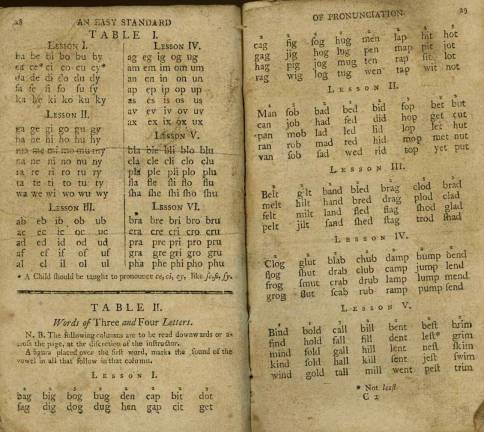 28 AN EASY STANDARD
TABLE I.
LESSON I.
ba be bi bo bu by
ca ce* ci co cu cy*
da de di do du dy
fa fe fi fo fu fy
ka ke ki ko ku ky
LESSON II.
ga ge gi go gu gy
ha he hi ho hu hy
ma me mi mo mu my
na ne ni no nu ny
ra re ri ro ru ry
ta te ti to tu ty
wa we wi wo wu wy
LESSON III.
ab eb ib ob ub
ac ec ic oc uc
ad ed id od ud
af ef if of uf
al el il ol ul
LESSON IV.
ag eg ig og ug
am em im om um
an en in on un
ap ep ip op up
as es is os us
av ev iv ov uv
ax ex ix ox ux
LESSON V.
bla ble bli blo blu
cla cle cli clo clu
pla ple pli plo plu
fla fle fli flo flu
ſha ſhe ſhi ſho ſhu
LESSON VI.
bra bre bri bro bru
cra cre cri cro cru
pra pre pri pro pru
gra gre gri gro gru
pha phe phi pho phu
* A Child ſhould be taught to pronounce ce, ci, cy, like ſe, ſi, ſy.
TABLE II.
Words of Three and Four Letters.
N. B. The following columns are to be read downwards or a-
croſs the page, at the diſcretion of the inſtructor.
A figure placed over the firſt word, marks the ſound of the
vowel in all that follow in that column.
LESSON I.
bag big bog bug den cap bit dot
fag dig dog dug hen gap cit get
OF PRONUNCIATION. 29
cag fig fog hug men lap hit hot
gag jig hog lug pen map pit jot
hag pig jog mug ten rap ſit lot
rag wig log tug wen tap wit not
LESSON II.
Man fob bad bed bid fop bet but
can job had fed did hop get cut
pan mob lad led lid lop let hut
ran rob mad red hid mop met nut
van ſob ſad wed rid top yet put
LESSON III.
Belt gilt band bled brag clod brad
melt hilt hand bred drag plod clad
felt milt land fled flag ſhod glad
pelt jilt ſand ſhed ſtag trod ſhad
LESSON IV.
Clog glut blab chub damp bump bend
flog ſhut drab club camp jump lend
frog ſmut crab drub lamp lump mend
grog ſlut ſcab rub ramp pump ſend
LESSON V.
Bind bold call bill bent beſt brim
find hold fall fill dent leſt* grim
mind fold gall hill lent neſt ſkim
kind ſold hall kill ſent jeſt ſwim
wind gold tall mill went peſt trim
* Not leaſt
C 2